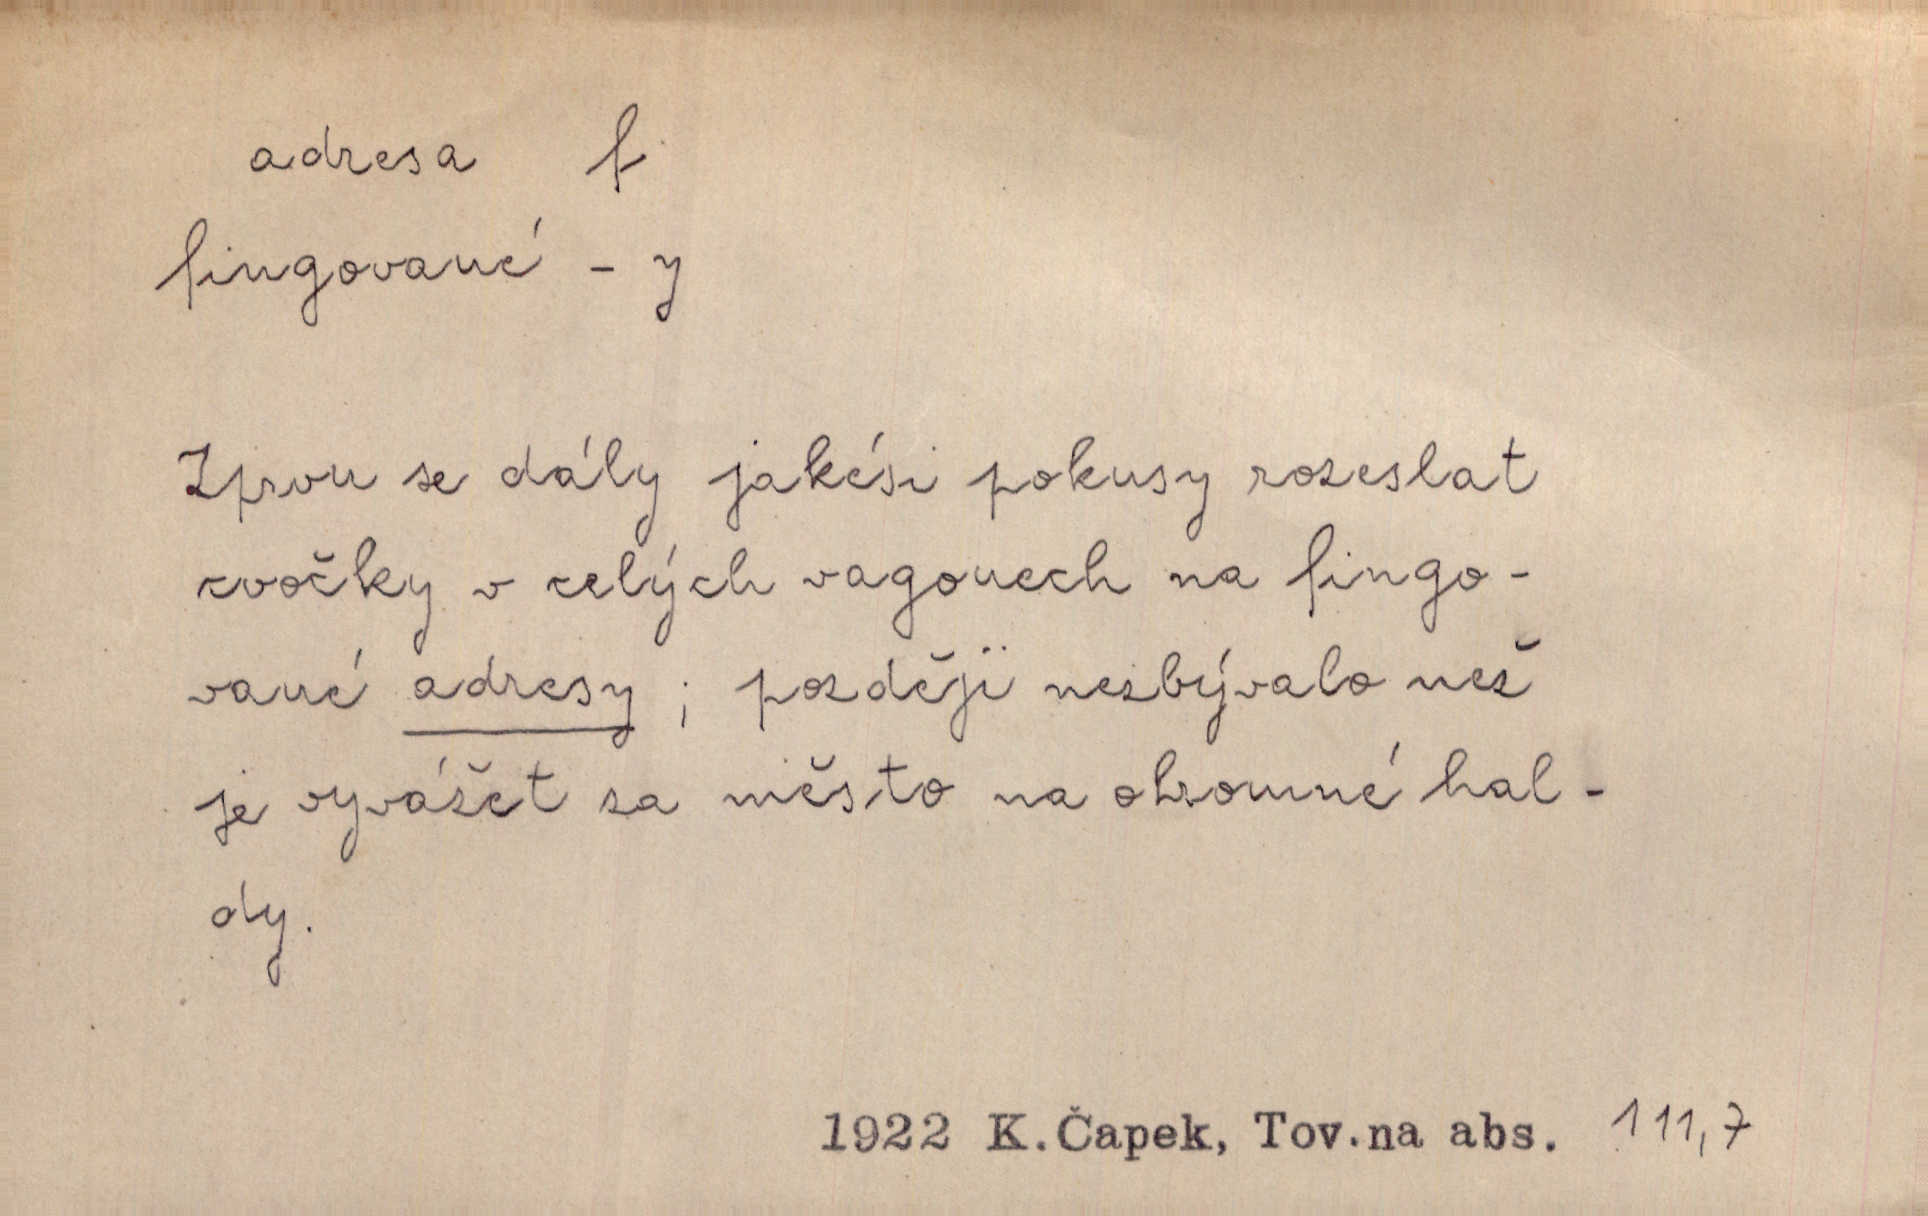 adresa f.
fingované - y
Zprvu se dály jakési pokusy rozeslat
cvočky v celých vagonech na fingo-
vané adresy ; později nezbývalo než
je vyvážet za město na ohromné hal-
dy.
1922 K.Čapek, Tov.na abs. 111,7